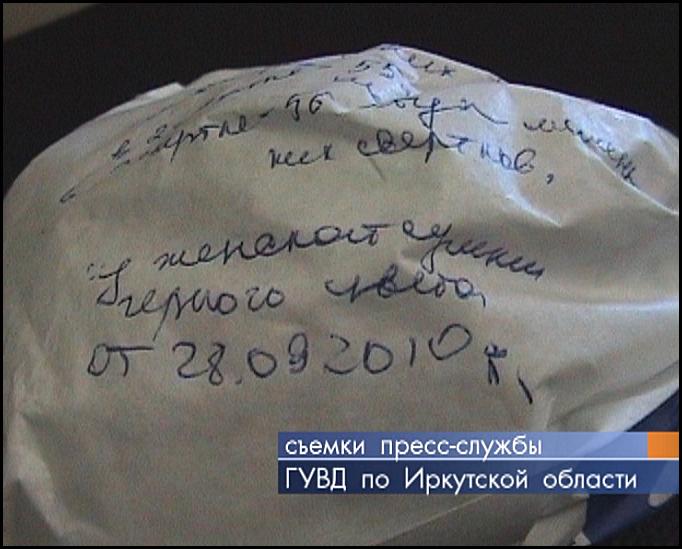 55
96
них свертков,
из женской сумки
черного цвета,
от 28.09 2010 г,
съемки пресс-службы
ГУВД по Иркутской области